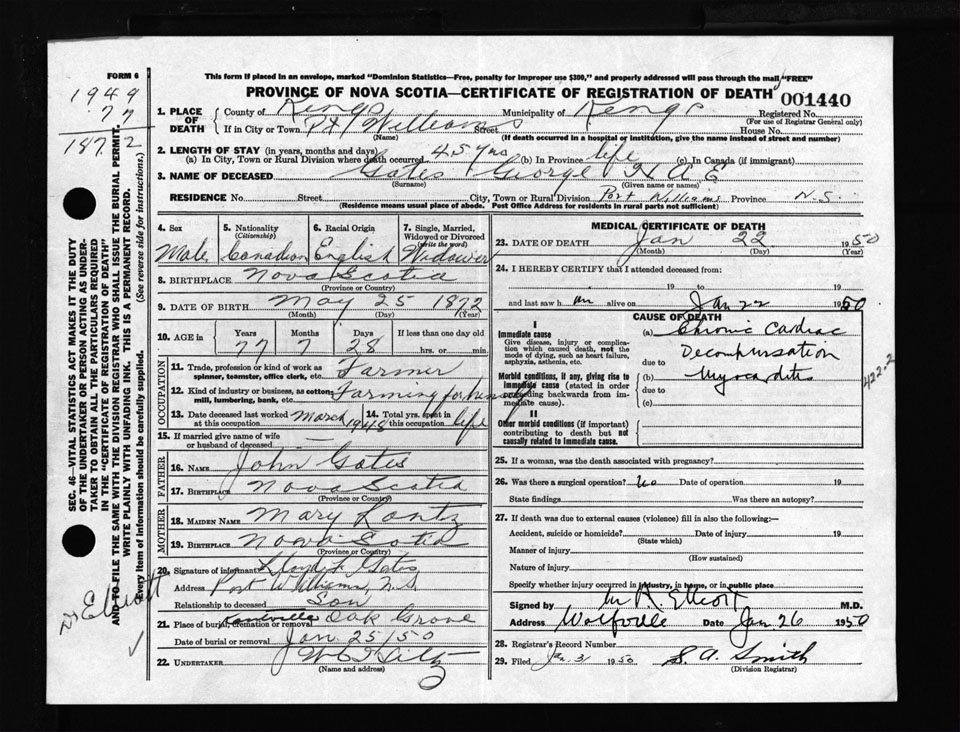 FORM 6
This form if placed in an envelope, marked "Dominion Statistics—Free, penalty for improper use $300," and properly addressed will pass through the mail "FREE"
PROVINCE OF NOVA SCOTIA—CERTIFICATE OF REGISTRATION OF DEATH 001440
1949
77
1872
1. PLACE OF DEATH
County of Kings Municipality of Kings Registered No.
(For use of Registrar General only)
If in City or Town Pt Williams Street House No.
(Name) (If death occurred in a hospital or institution, give the name instead of street and number)
2. LENGTH OF STAY (in years, months and days)
(a) In City, Town or Rural Division where death occurred 45 yrs (b) In Province life (c) In Canada (if immigrant)
3. NAME OF DECEASED Gates George H A E
(Surname) (Given name or names)
RESIDENCE No. Street City, Town or Rural Division Port Williams Province N.S.
(Residence means usual place of abode. Post Office Address for residents in rural parts not sufficient)
4. Sex 5. Nationality (Citizenship) 6. Racial Origin 7. Single, Married, Widowed or Divorced (write the word)
Male Canadian English Widower
8. BIRTHPLACE Nova Scotia
(Province or Country)
9. DATE OF BIRTH May 25 1872
(Month) (Day) (Year)
10. AGE in Years Months Days If less than one day old
77 7 28 hrs. or min.
OCCUPATION
11. Trade, profession or kind of work as spinner, teamster, office clerk, etc. Farmer
12. Kind of industry or business, as cotton mill, lumbering, bank, etc. Farming for himself
13. Date deceased last worked at this occupation March 1948 14. Total yrs. spent in this occupation life
15. If married give name of wife or husband of deceased —
FATHER
16. NAME John Gates
17. BIRTHPLACE Nova Scotia
(Province or Country)
MOTHER
18. MAIDEN NAME Mary Lantz
19. BIRTHPLACE Nova Scotia
(Province or Country)
20. Signature of informant Lloyd F. Gates
Address Port Williams, N.S.
Relationship to deceased Son
21. Place of burial, cremation or removal Kentville Oak Grove
Date of burial or removal Jan. 25/50
22. UNDERTAKER
(Name and address)
MEDICAL CERTIFICATE OF DEATH
23. DATE OF DEATH Jan 22 1950
(Month) (Day) (Year)
24. I HEREBY CERTIFY that I attended deceased from:
19 to 19
and last saw him alive on Jan 22 1950
CAUSE OF DEATH
I
Immediate cause
Give disease, injury or complication which caused death, not the mode of dying, such as heart failure, asphyxia, asthenia, etc.
(a) Chronic Cardiac
Decompensation
due to
Morbid conditions, if any, giving rise to immediate cause (stated in order preceding backwards from immediate cause).
(b) Myocarditis
due to
(c)
422.2
II
Other morbid conditions (if important) contributing to death but not causally related to immediate cause.
25. If a woman, was the death associated with pregnancy?
26. Was there a surgical operation? No Date of operation 19
State findings Was there an autopsy?
27. If death was due to external causes (violence) fill in also the following:—
Accident, suicide or homicide? Date of injury 19
(State which)
Manner of injury
(How sustained)
Nature of injury
Specify whether injury occurred in industry, in home, or in public place
Signed by M. R. Elliott M.D.
Address Wolfville Date Jan. 26 1950
28. Registrar's Record Number
29. Filed Jan. 31 1950 S. A. Smith
(Division Registrar)
SEC. 46—VITAL STATISTICS ACT MAKES IT THE DUTY
OF THE UNDERTAKER OR PERSON ACTING AS UNDER-
TAKER TO OBTAIN ALL THE PARTICULARS REQUIRED
IN THE "CERTIFICATE OF REGISTRATION OF DEATH"
AND TO FILE THE SAME WITH THE DIVISION REGISTRAR WHO SHALL ISSUE THE BURIAL PERMIT.
WRITE PLAINLY WITH UNFADING INK. THIS IS A PERMANENT RECORD.
Every item of information should be carefully supplied. (See reverse side for instructions.)
Dr Elliott